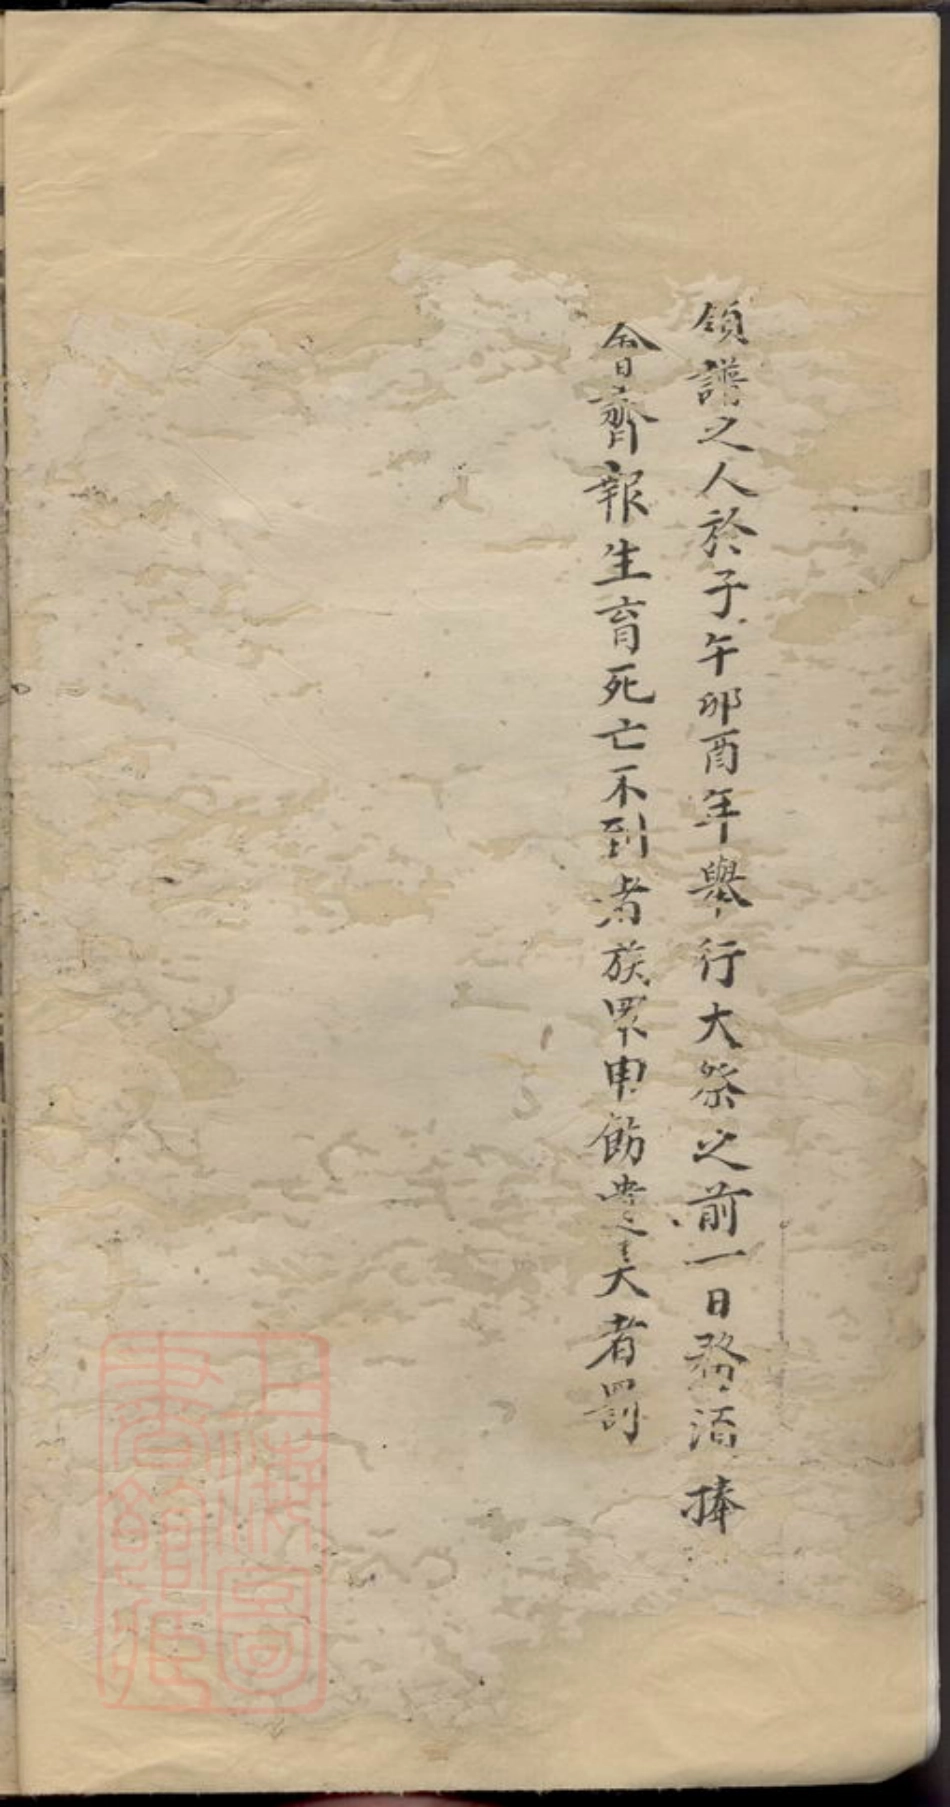 領譜之人於子午卯酉年舉行大祭之前一日務須捧
會齊報生育死亡不到者族眾申飭遺失者罰
上海圖
書館藏